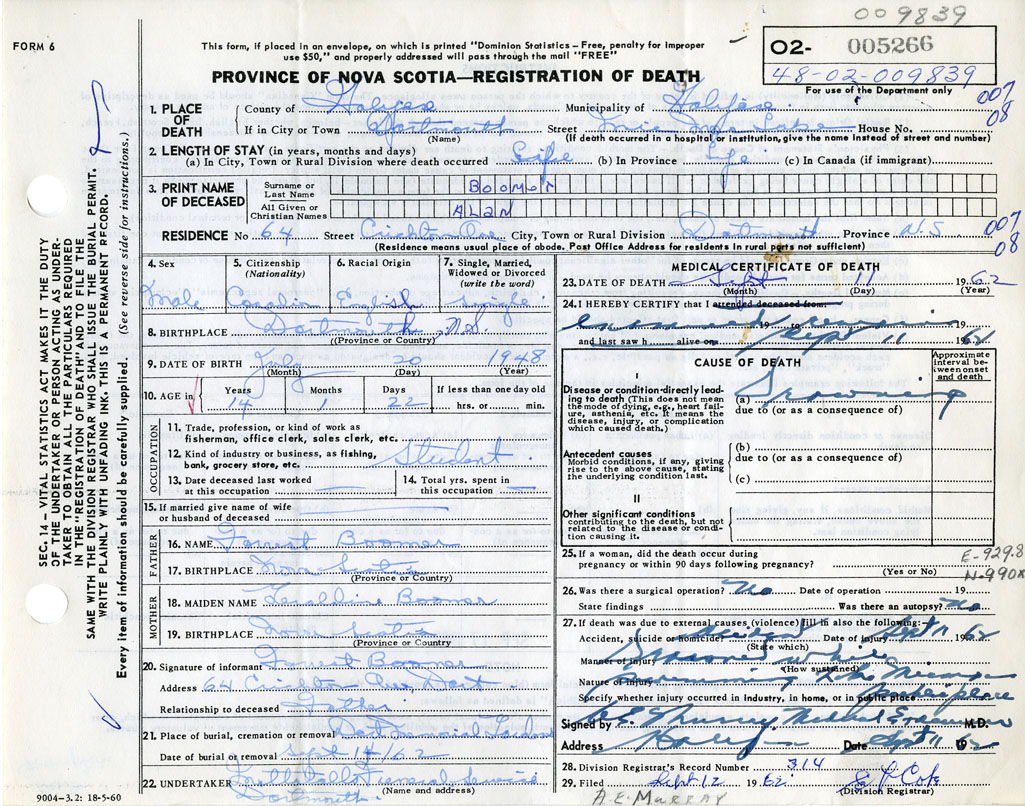 009839
FORM 6
This form, if placed in an envelope, on which is printed "Dominion Statistics – Free, penalty for improper
use $50," and properly addressed will pass through the mail "FREE"
PROVINCE OF NOVA SCOTIA—REGISTRATION OF DEATH
02- 005266
48-02-009839
For use of the Department only
007
08
SEC. 14 – VITAL STATISTICS ACT MAKES IT THE DUTY
OF THE UNDERTAKER OR PERSON ACTING AS UNDER-
TAKER TO OBTAIN ALL THE PARTICULARS REQUIRED
IN THE "REGISTRATION OF DEATH" AND TO FILE THE
SAME WITH THE DIVISION REGISTRAR WHO SHALL ISSUE THE BURIAL PERMIT.
WRITE PLAINLY WITH UNFADING INK. THIS IS A PERMANENT RECORD.
Every item of information should be carefully supplied. (See reverse side for instructions.)
1. PLACE OF DEATH
County of Halifax Municipality of Halifax
If in City or Town Dartmouth Street Lake House No.
(Name) (If death occurred in a hospital or institution, give the name instead of street and number)
2. LENGTH OF STAY (in years, months and days)
(a) In City, Town or Rural Division where death occurred Life (b) In Province Life (c) In Canada (if immigrant)
3. PRINT NAME OF DECEASED
Surname or Last Name BOOMER
All Given or Christian Names ALAN
RESIDENCE No 64 Street Crichton Ave City, Town or Rural Division Dartmouth Province N.S.
(Residence means usual place of abode. Post Office Address for residents in rural parts not sufficient)
007
08
4. Sex Male
5. Citizenship (Nationality) Canadian
6. Racial Origin English
7. Single, Married, Widowed or Divorced (write the word) single
8. BIRTHPLACE Dartmouth N.S.
(Province or Country)
9. DATE OF BIRTH July 20 1948
(Month) (Day) (Year)
10. AGE in Years 14 Months 1 Days 22 If less than one day old hrs. or min.
OCCUPATION
11. Trade, profession, or kind of work as
fisherman, office clerk, sales clerk, etc.
12. Kind of industry or business, as fishing,
bank, grocery store, etc. Student
13. Date deceased last worked at this occupation
14. Total yrs. spent in this occupation
15. If married give name of wife
or husband of deceased
FATHER
16. NAME Forrest Boomer
17. BIRTHPLACE Nova Scotia
(Province or Country)
MOTHER
18. MAIDEN NAME Geraldine Boomer
19. BIRTHPLACE Nova Scotia
(Province or Country)
20. Signature of informant Forrest Boomer
Address 64 Crichton Ave, Dart
Relationship to deceased Father
21. Place of burial, cremation or removal Dart Memorial Gardens
Date of burial or removal Sept 14/62
22. UNDERTAKER Funeral Service
Dartmouth (Name and address)
9004–3.2: 18-5-60
MEDICAL CERTIFICATE OF DEATH
23. DATE OF DEATH Sept 11 1962
(Month) (Day) (Year)
24. I HEREBY CERTIFY that I attended deceased from:
examined 19 to remains 19
and last saw h alive on Sept 11 1962
CAUSE OF DEATH
Approximate interval between onset and death
I
Disease or condition directly leading
to death (This does not mean
the mode of dying, e.g., heart failure,
asthenia, etc. It means the
disease, injury, or complication
which caused death.)
(a) Drowning
due to (or as a consequence of)
Antecedent causes
Morbid conditions, if any, giving
rise to the above cause, stating
the underlying condition last.
(b)
due to (or as a consequence of)
(c)
II
Other significant conditions
contributing to the death, but not
related to the disease or condition
causing it.
25. If a woman, did the death occur during
pregnancy or within 90 days following pregnancy?
(Yes or No)
E-929.8
N-990X
26. Was there a surgical operation? No Date of operation 19
State findings Was there an autopsy? No
27. If death was due to external causes (violence) fill in also the following:—
Accident, suicide or homicide? Accident Date of injury Sept 11 1962
(State which)
Manner of injury Drowned while
(How sustained)
Nature of injury swimming Lake
Specify whether injury occurred in industry, in home, or in public place
Signed by A E Murray Medical Examiner M.D.
Address Halifax Date Sept 11 1962
28. Division Registrar's Record Number 314
29. Filed Sept 12 1962
(Division Registrar)
A.E. MURRAY